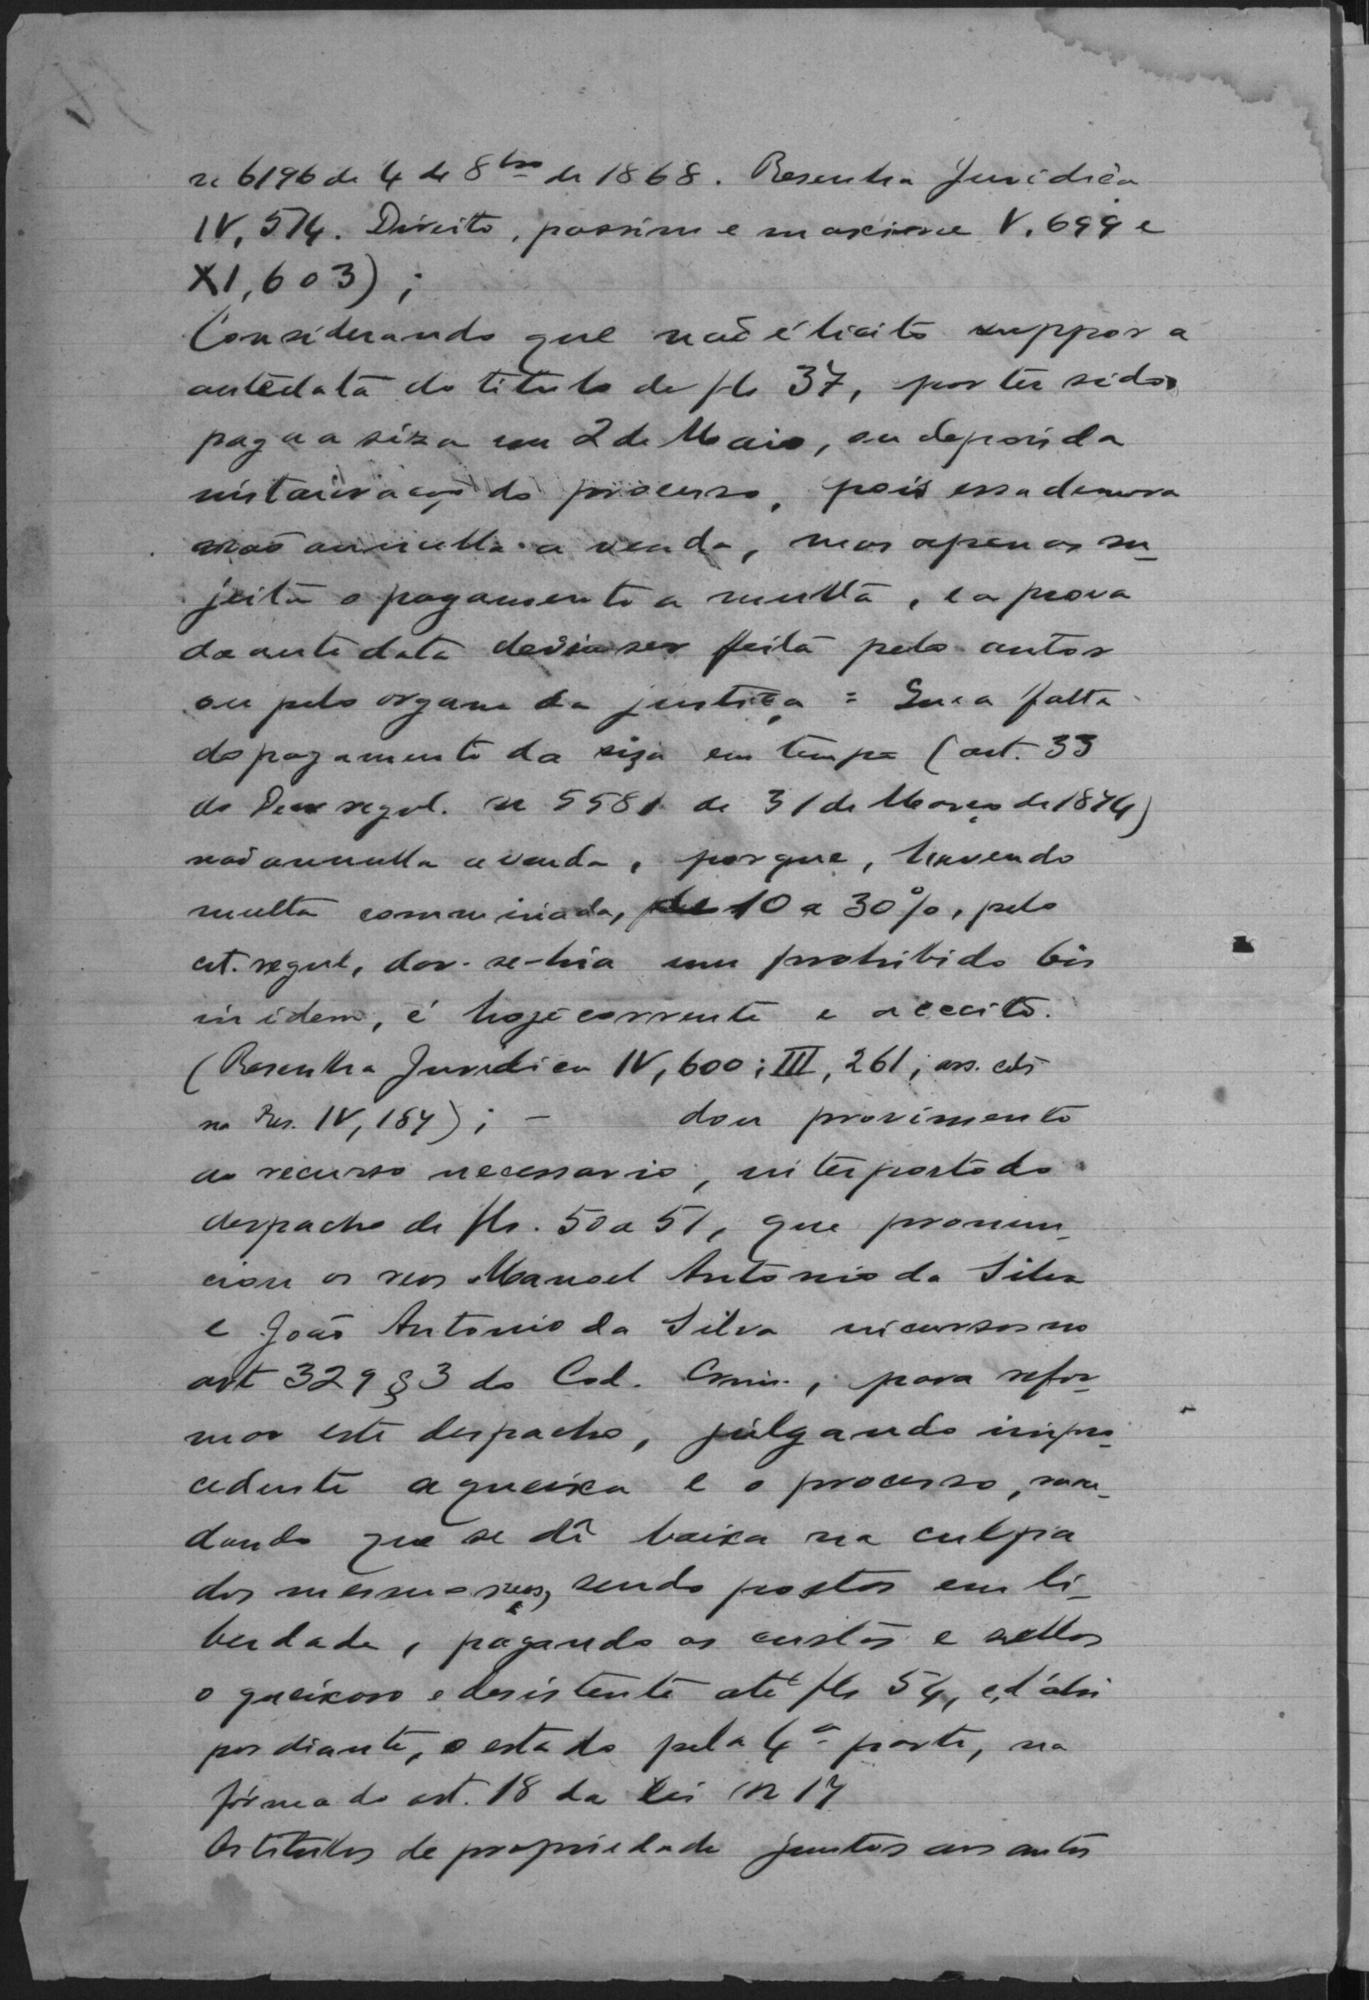 n 6196 de 4 de 8bro de 1868. Resenha Juridica
IV, 574. Direito, passim e maxime V. 699 e
XI, 603);
Considerando que não é licito suppor a
antedata do titulo de fls 37, por ter sido
paga a siza em 2 de Maio, ou depois da
instauração do processo, pois essa demora
não annulla a venda, mas apenas su-
jeita o pagamento a multa, e a prova
da antedata devia ser feita pelo autor
ou pelo orgam da justiça = Que a falta
do pagamento da siza em tempo (art. 33
do Decr regul. n 5581 de 31 de Março de 1874)
não annulla a venda, porque, havendo
multa comminada, de 10 a 30%, pelo
cit. regul, dar-se-hia um prohibido bis
in idem, é hoje corrente e acceito.
(Resenha Juridica IV, 600; III, 261; ars. cits
na Res. IV, 184); - dou provimento
ao recurso necessario, interposto do
despacho de fls. 50 a 51, que pronun-
ciou os reos Manoel Antonio da Silva
e João Antonio da Silva incursos no
art 329 § 3 do Cod. Crim., para refor-
mar este despacho, julgando impro-
cedente a queixa e o processo, man-
dando que se dê baixa na culpa
dos mesmos reos, sendo postos em li-
berdade, pagando as custas e sellos
o queixoso e desistente até fls 54, e, d'ahi
por diante, o estado pela 4ª parte, na
fórma do art. 18 da Lei n 17
Os titulos de propriedade juntos aos autos